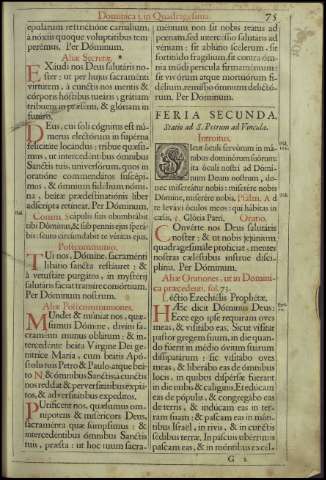 Dominica j. in Quadragesima.
75
epularum restrictione carnalium,
a noxiis quoque voluptatibus tem
perémus. Per Dóminum.
Aliæ Secretæ.
EXaudi nos Deus salutáris no-
ster: ut per hujus sacramenti
virtútem, à cunctis nos mentis &
córporis hóstibus tueáris; grátiam
tríbuens in præsenti, & glóriam in
futúro.
DEus, cui soli cógnitus est nú-
merus electórum in supérna
felicitáte locandus: tríbue quæsu-
mus, ut intercedéntibus ómnibus
Sanctis tuis, universórum, quos in
oratióne commendátos suscépi-
mus, & ómnium fidélium nómi-
na, beátæ prædestinatiónis liber
adscripta retíneat. Per Dóminum.
Comm. Scápulis suis obumbrábit
tibi Dóminus, & sub pennis ejus sperá-
bis: scuto circúmdabit te véritas ejus.
Postcommunio.
TUi nos, Dómine, sacraménti
libátio sancta restáuret; &
à vetustáte purgátos, in mystérij
salutáris fáciat transíre consórtium.
Per Dóminum nostrum.
Aliæ Postcommuniones.
MUndet & múniat nos, quæ-
sumus Dómine, divíni sa-
craménti munus oblátum: & in-
tercedénte beáta Vírgine Dei ge-
nitríce María, cum beátis Após-
tolis tuis Petro & Paulo, atque beá-
to N. & ómnibus Sanctis, à cunctis
nos reddat & perversitátibus expiá-
tos, & adversitátibus expedítos.
PUríficent nos, quæsumus om-
nípotens & miséricors Deus,
sacraménta quæ súmpsimus: &
intercedéntibus ómnibus Sanctis
tuis, præsta: ut hoc tuum sacra-
méntum non sit nobis reátus ad
pœnam, sed intercéssio salutáris ad
véniam: sit ablútio scélerum, sit
fortitúdo fragílium, sit contra óm-
nia mundi perícula firmaméntum:
sit vivórum atque mortuórum fi-
délium, remíssio ómnium delictó-
rum. Per Dóminum.
FERIA SECUNDA.
Statio ad S. Petrum ad Vincula.
Introitus.
SIcut óculi servórum in má-
nibus dominórum suórum:
ita óculi nostri ad Dómi-
num Deum nostrum, do-
nec misereátur nobis: miserére nobis
Dómine, miserére nobis. Psalm. A d
te levávi óculos meos: qui hábitas in
cælis. ℣. Glória Patri. Oratio.
COnvérte nos Deus salutáris
noster: & ut nobis jejúnium
quadragesimále profíciat, mentes
nostras cæléstibus instrue discí-
plinis. Per Dóminum.
Aliæ Orationes, ut in Domini-
ca præcedenti, fol. 73.
Léctio Ezechiélis Prophétæ.
HÆc dicit Dóminus Deus:
Ecce ego ipse requíram oves
meas, & visitábo eas. Sicut vísitat
pastor gregem suum, in die quan-
do fúerit in médio óvium suárum
dissipatárum: sic visitábo oves
meas, & liberábo eas de ómnibus
locis, in quibus dispérsæ fúerant
in die nubis & calíginis. Et edúcam
eas de pópulis, & congregábo eas
de terris, & indúcam eas in ter-
ram suam: & pascam eas in món-
tibus Israël, in rivis, & in cunctis
sédibus terræ. In páscuis ubérrimis
pascam eas, & in móntibus excel-
G 2